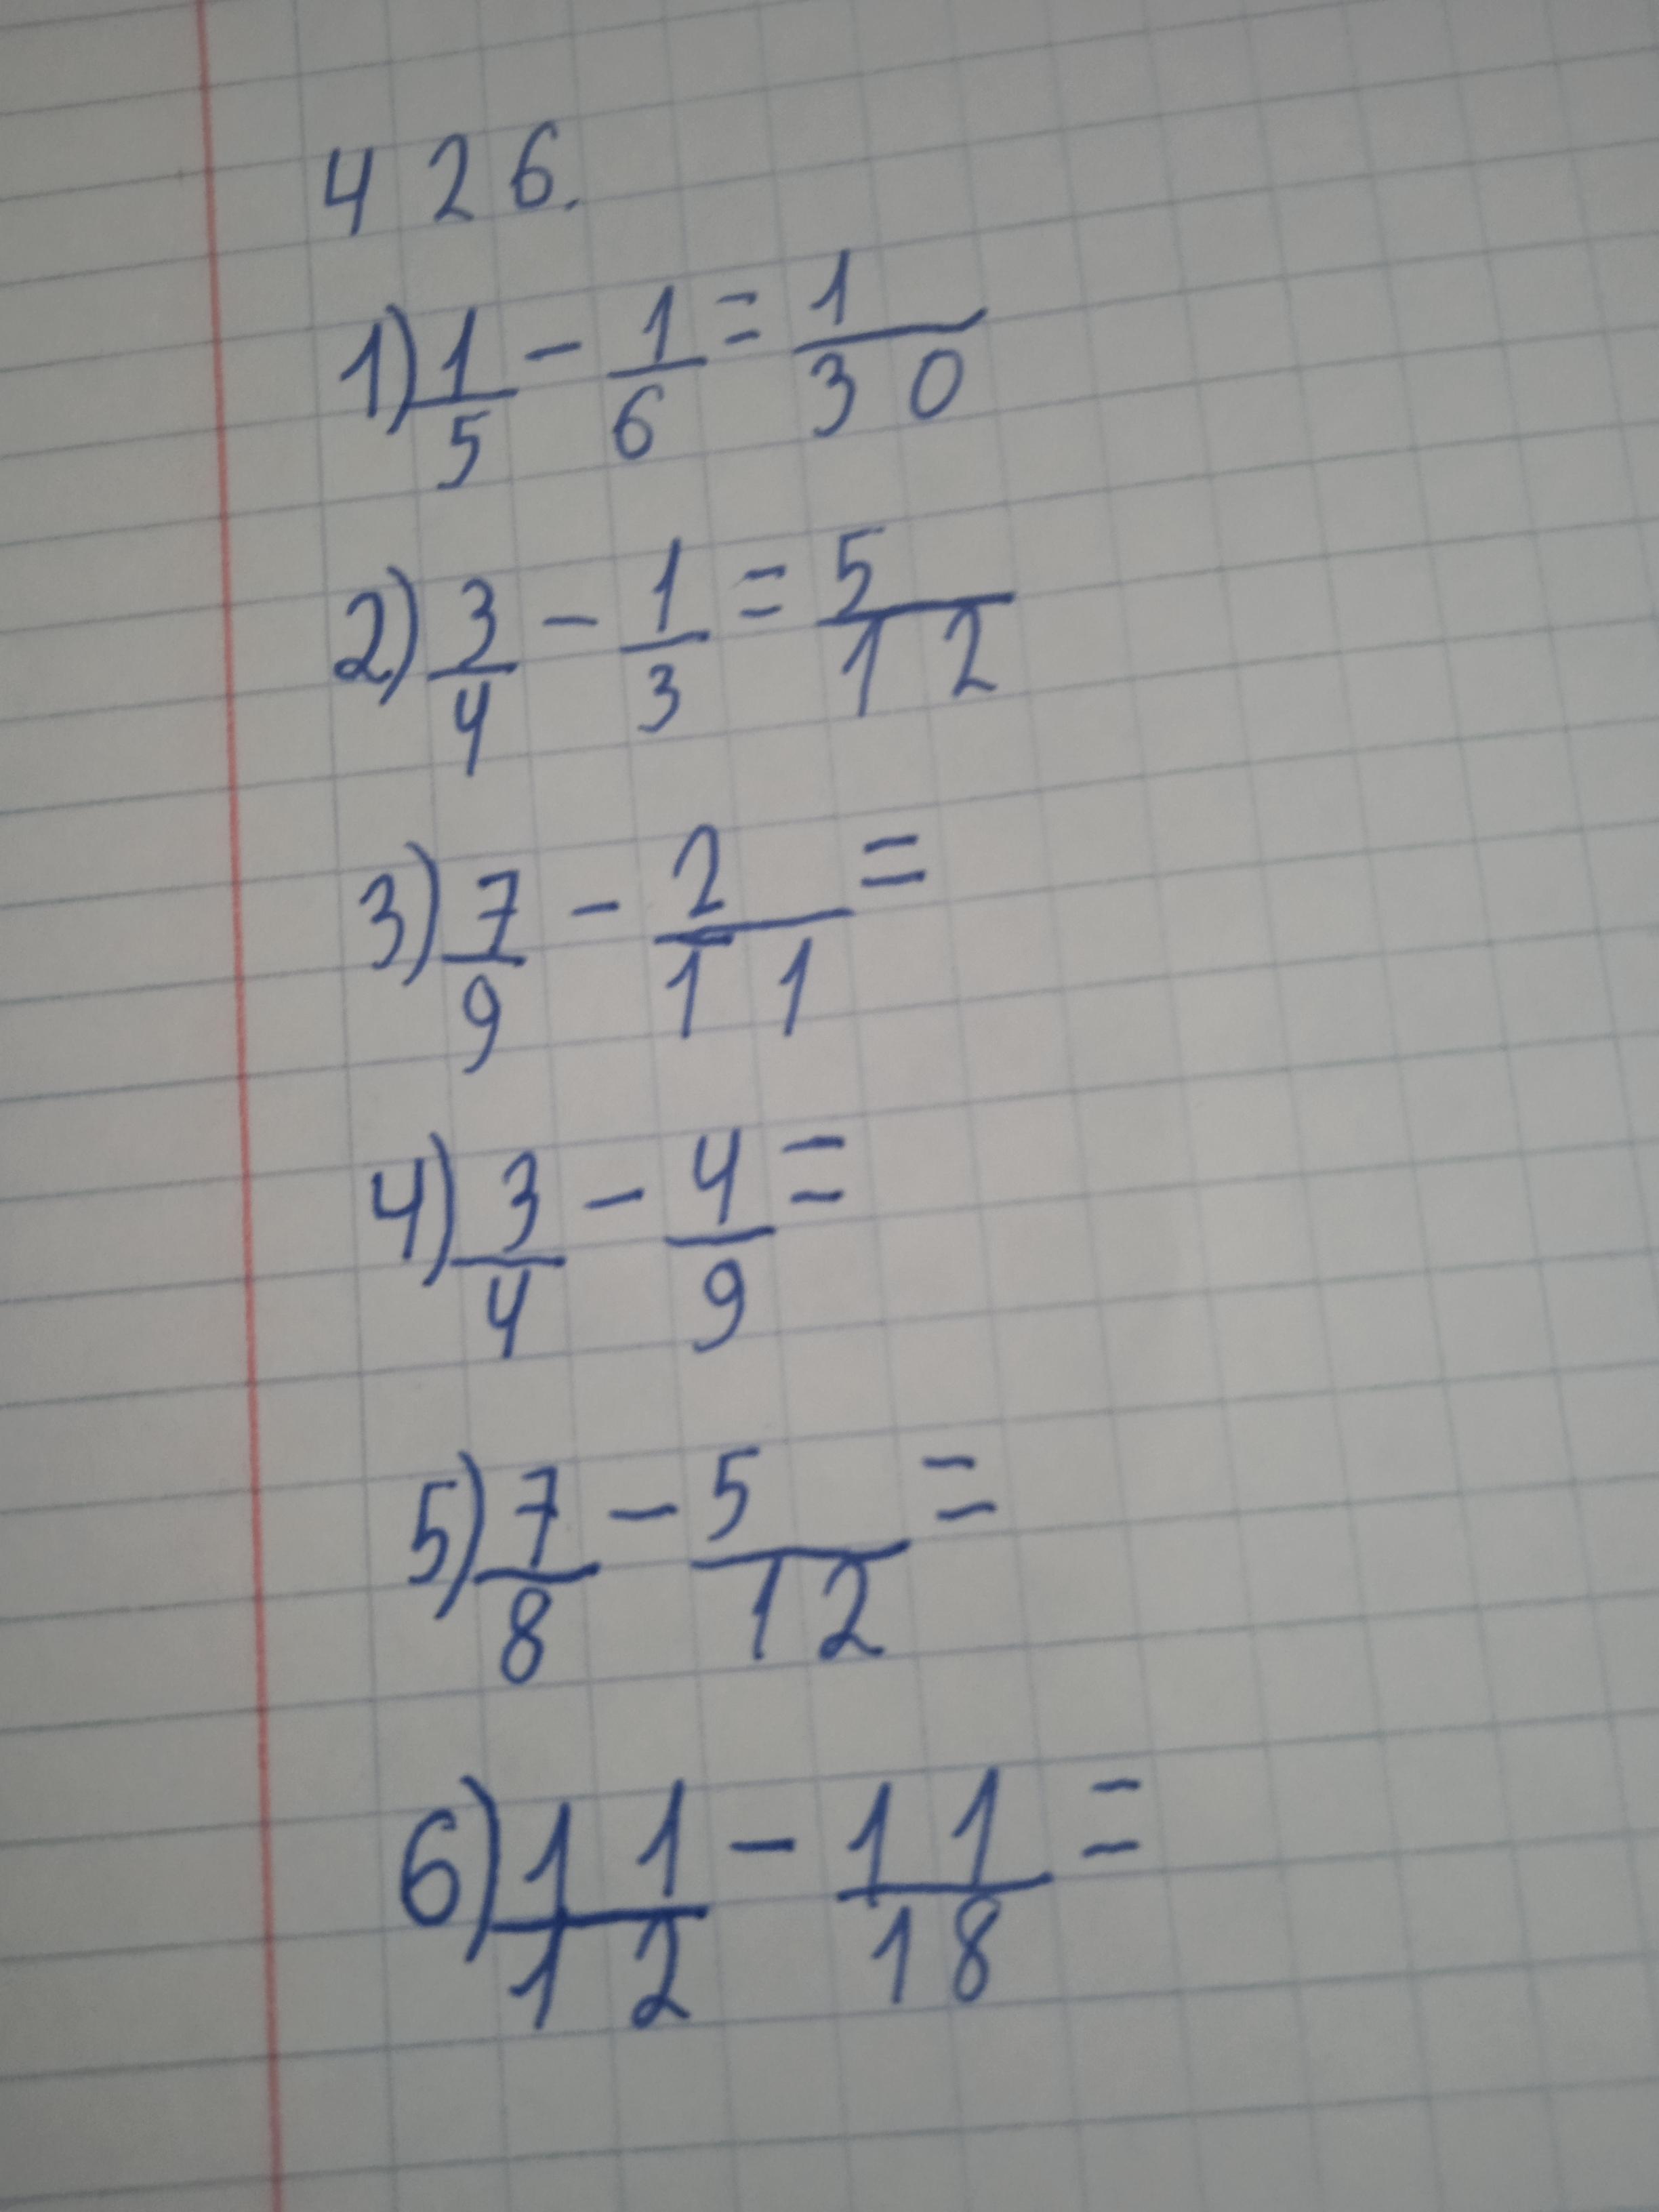 426.
1) 1/5 - 1/6 = 1/30
2) 3/4 - 1/3 = 5/12
3) 7/9 - 2/11 =
4) 3/4 - 4/9 =
5) 7/8 - 5/12 =
6) 11/12 - 11/18 =